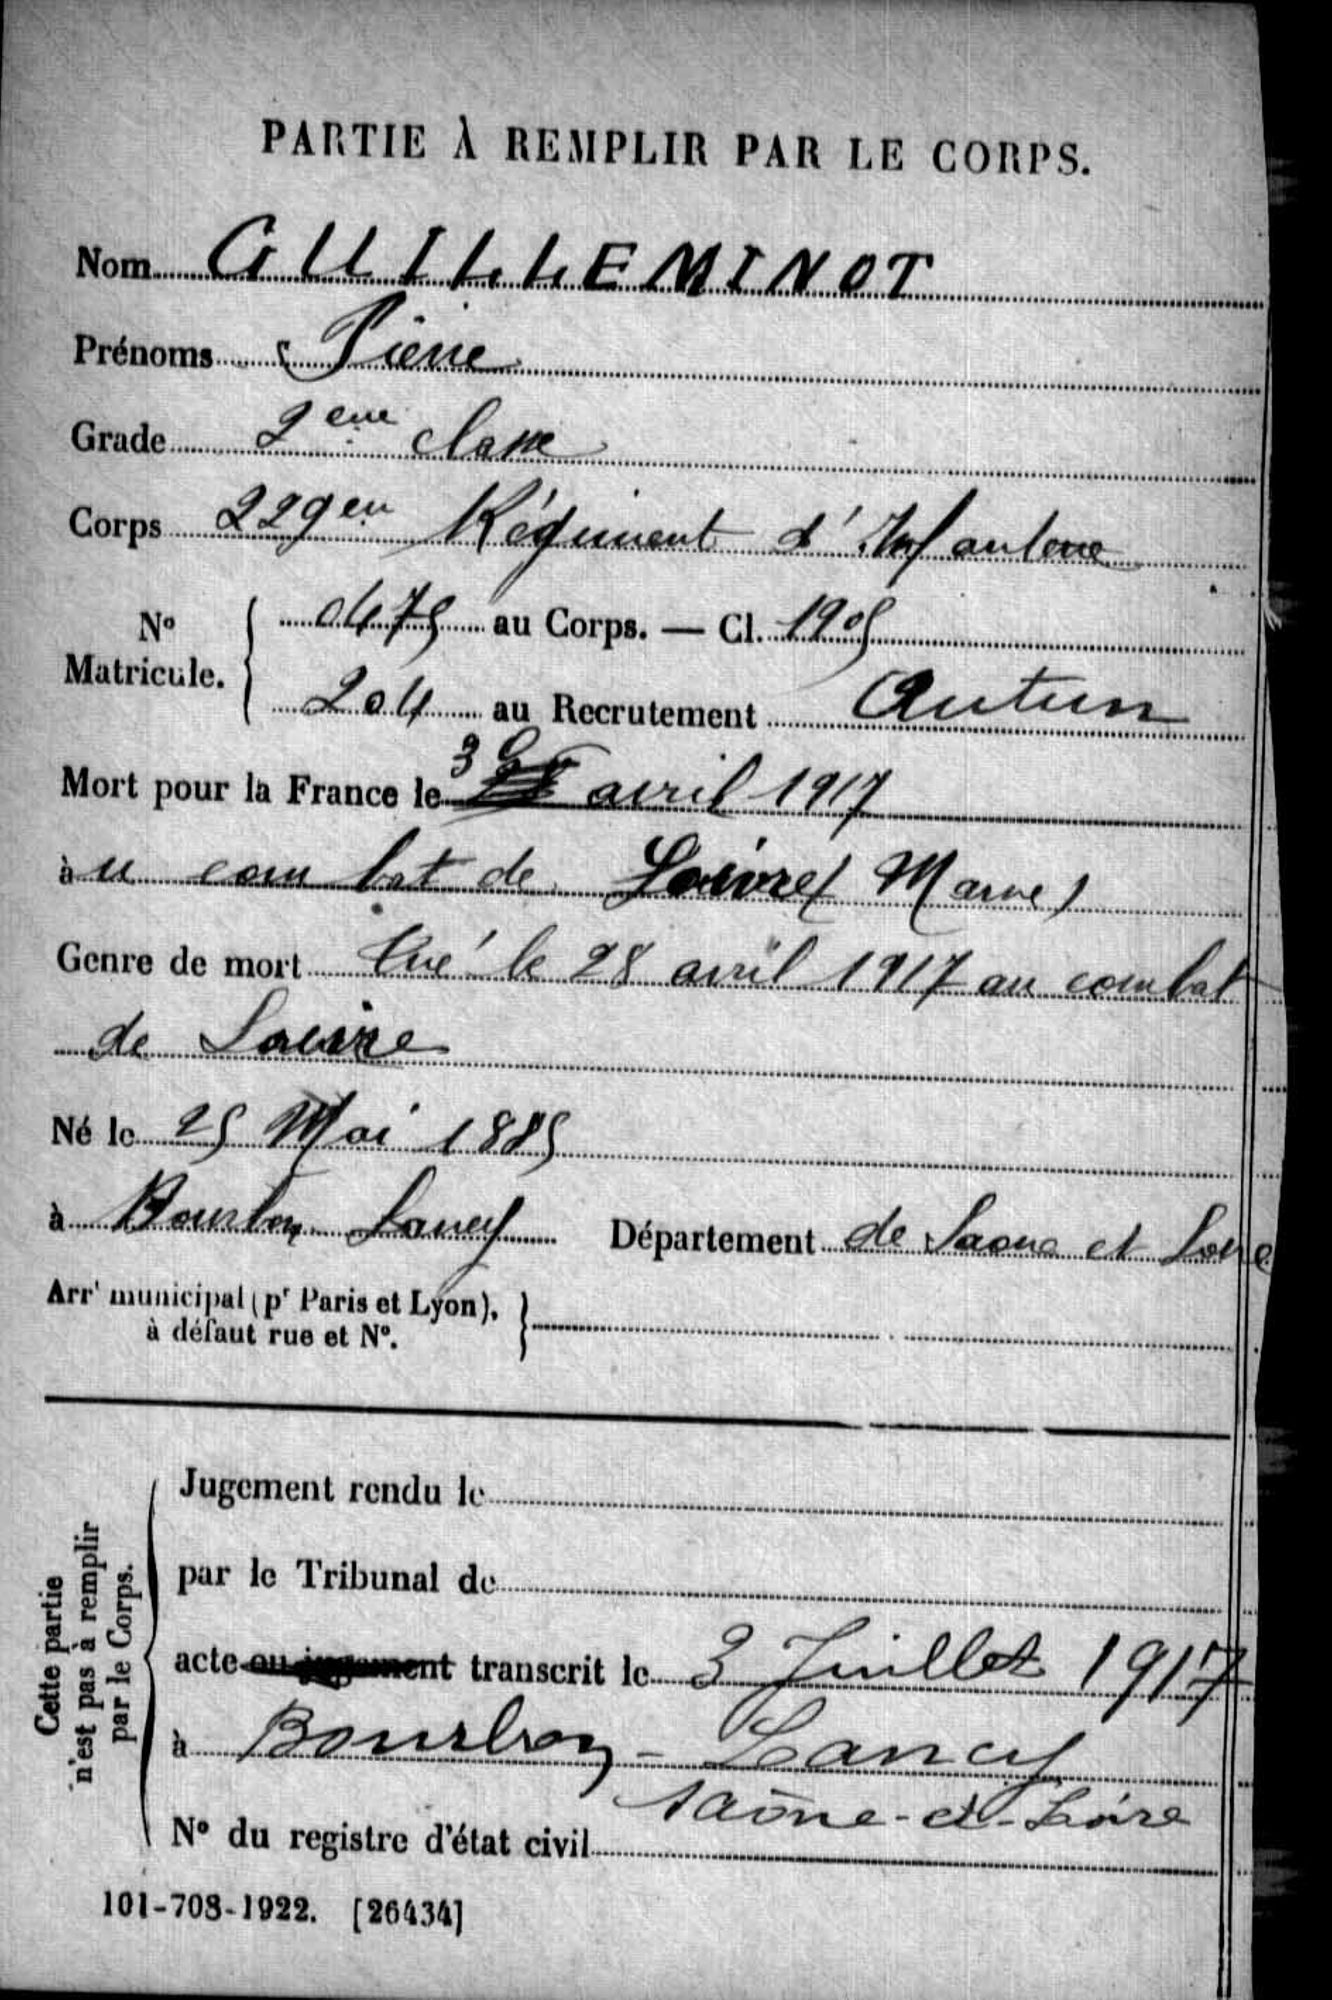 PARTIE À REMPLIR PAR LE CORPS.
Nom GUILLEMINOT
Prénoms Pierre
Grade 2eme classe
Corps 229em Régiment d'Infanterie
No Matricule. 0475 au Corps. — Cl. 1905
204 au Recrutement Autun
Mort pour la France le avril 1917
àu combat de Loivre (Marne)
Genre de mort tué le 28 avril 1917 au combat
de Loivre
Né le 25 Mai 1885
à Bourbon Lancy Département de Saone et Loire
Arrt municipal (pr Paris et Lyon),
à défaut rue et No.
Cette partie
n'est pas à remplir
par le Corps.
Jugement rendu le
par le Tribunal de
acte ou jugement transcrit le 3 Juillet 1917
à Bourbon-Lancy
Saône-et-Loire
No du registre d'état civil
101-708-1922. [26434]